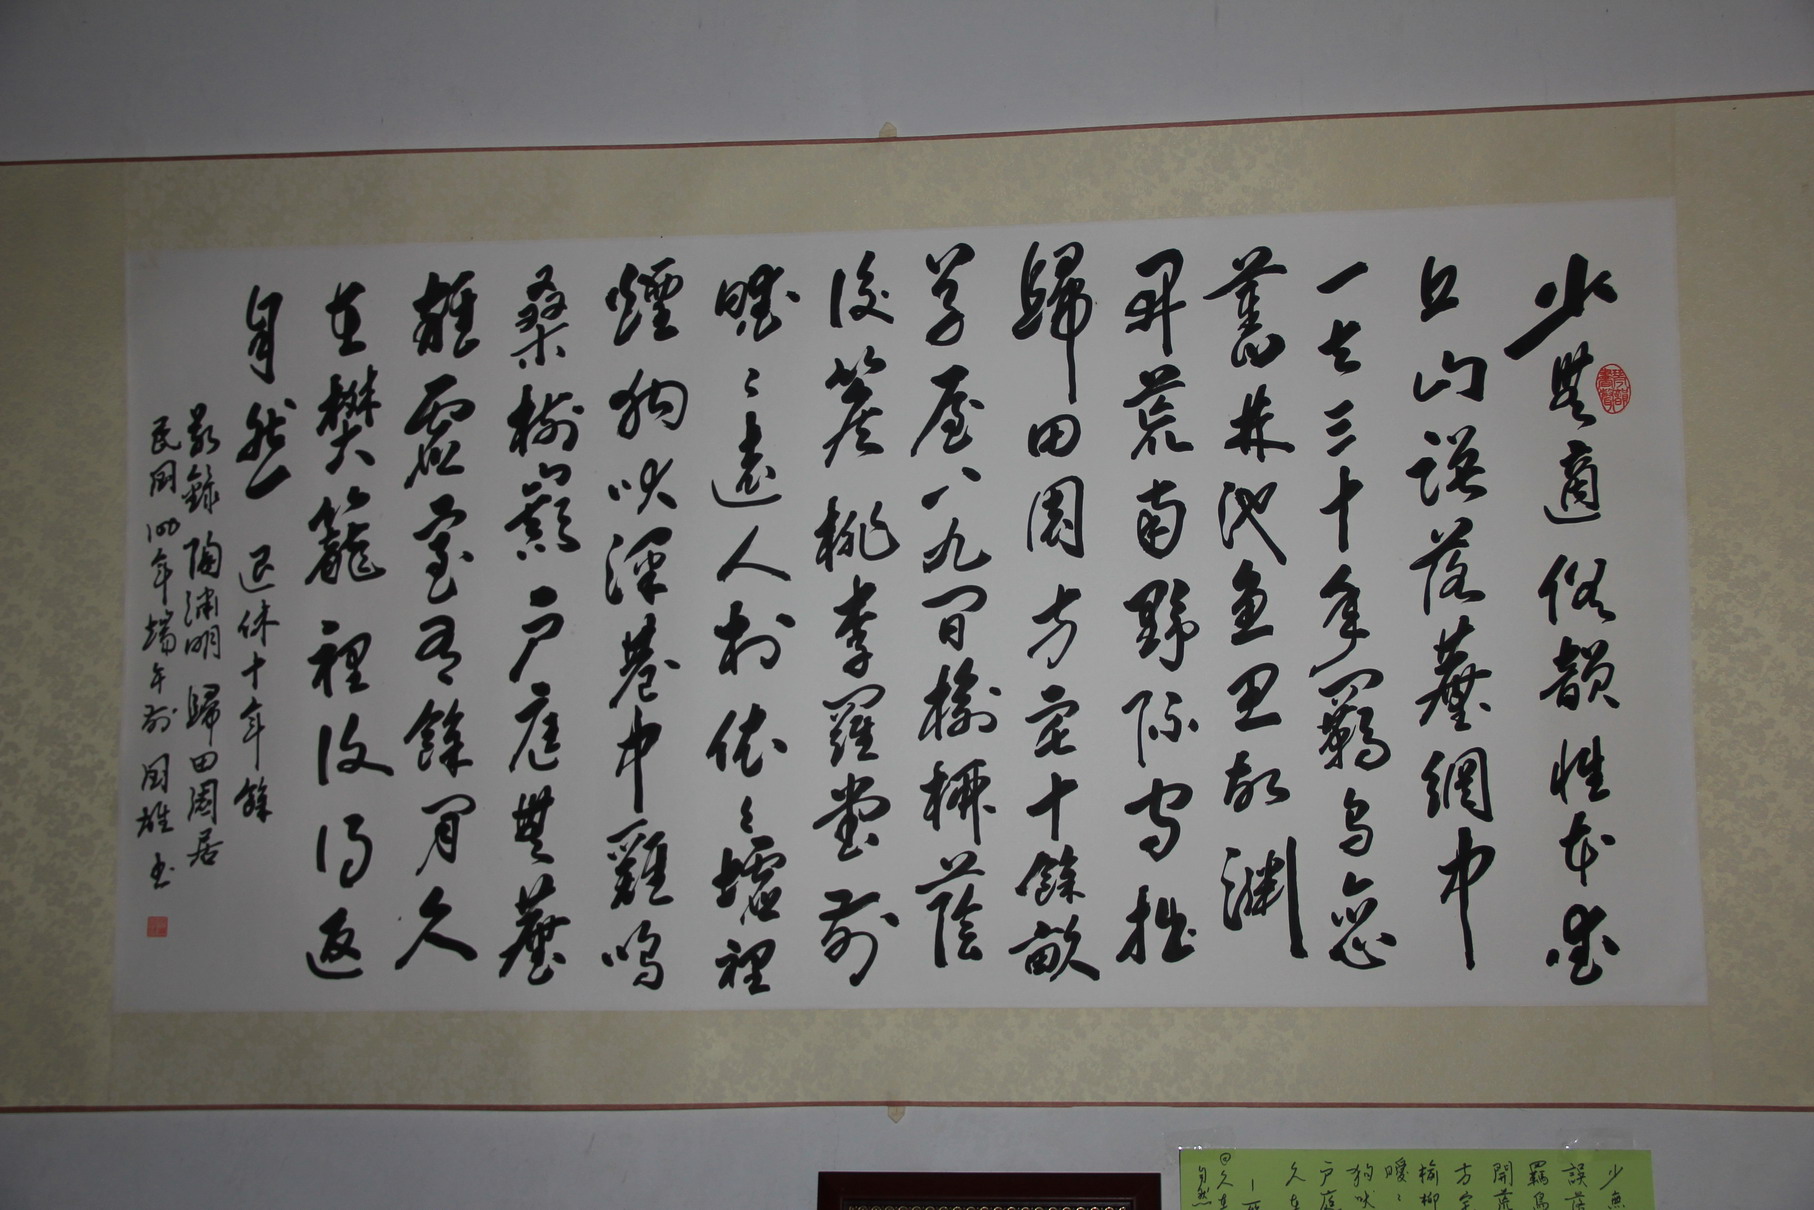 少無適俗韻性本愛
丘山誤落塵網中
一去三十年羈鳥戀
舊林池魚思故淵
開荒南野際守拙
歸田園方宅十餘畝
草屋八九間榆柳蔭
後簷桃李羅堂前
曖々遠人村依々墟裡
煙狗吠深巷中雞鳴
桑樹巔戶庭無塵
雜虛室有餘閒久
在樊籠裡復得返
自然 退休十年餘
敬錄陶淵明歸田園居
民國100年端午前國雄書
少無
誤落
羈鳥
開荒
方宅
榆柳
曖々
狗吠
戶庭
久在
自然